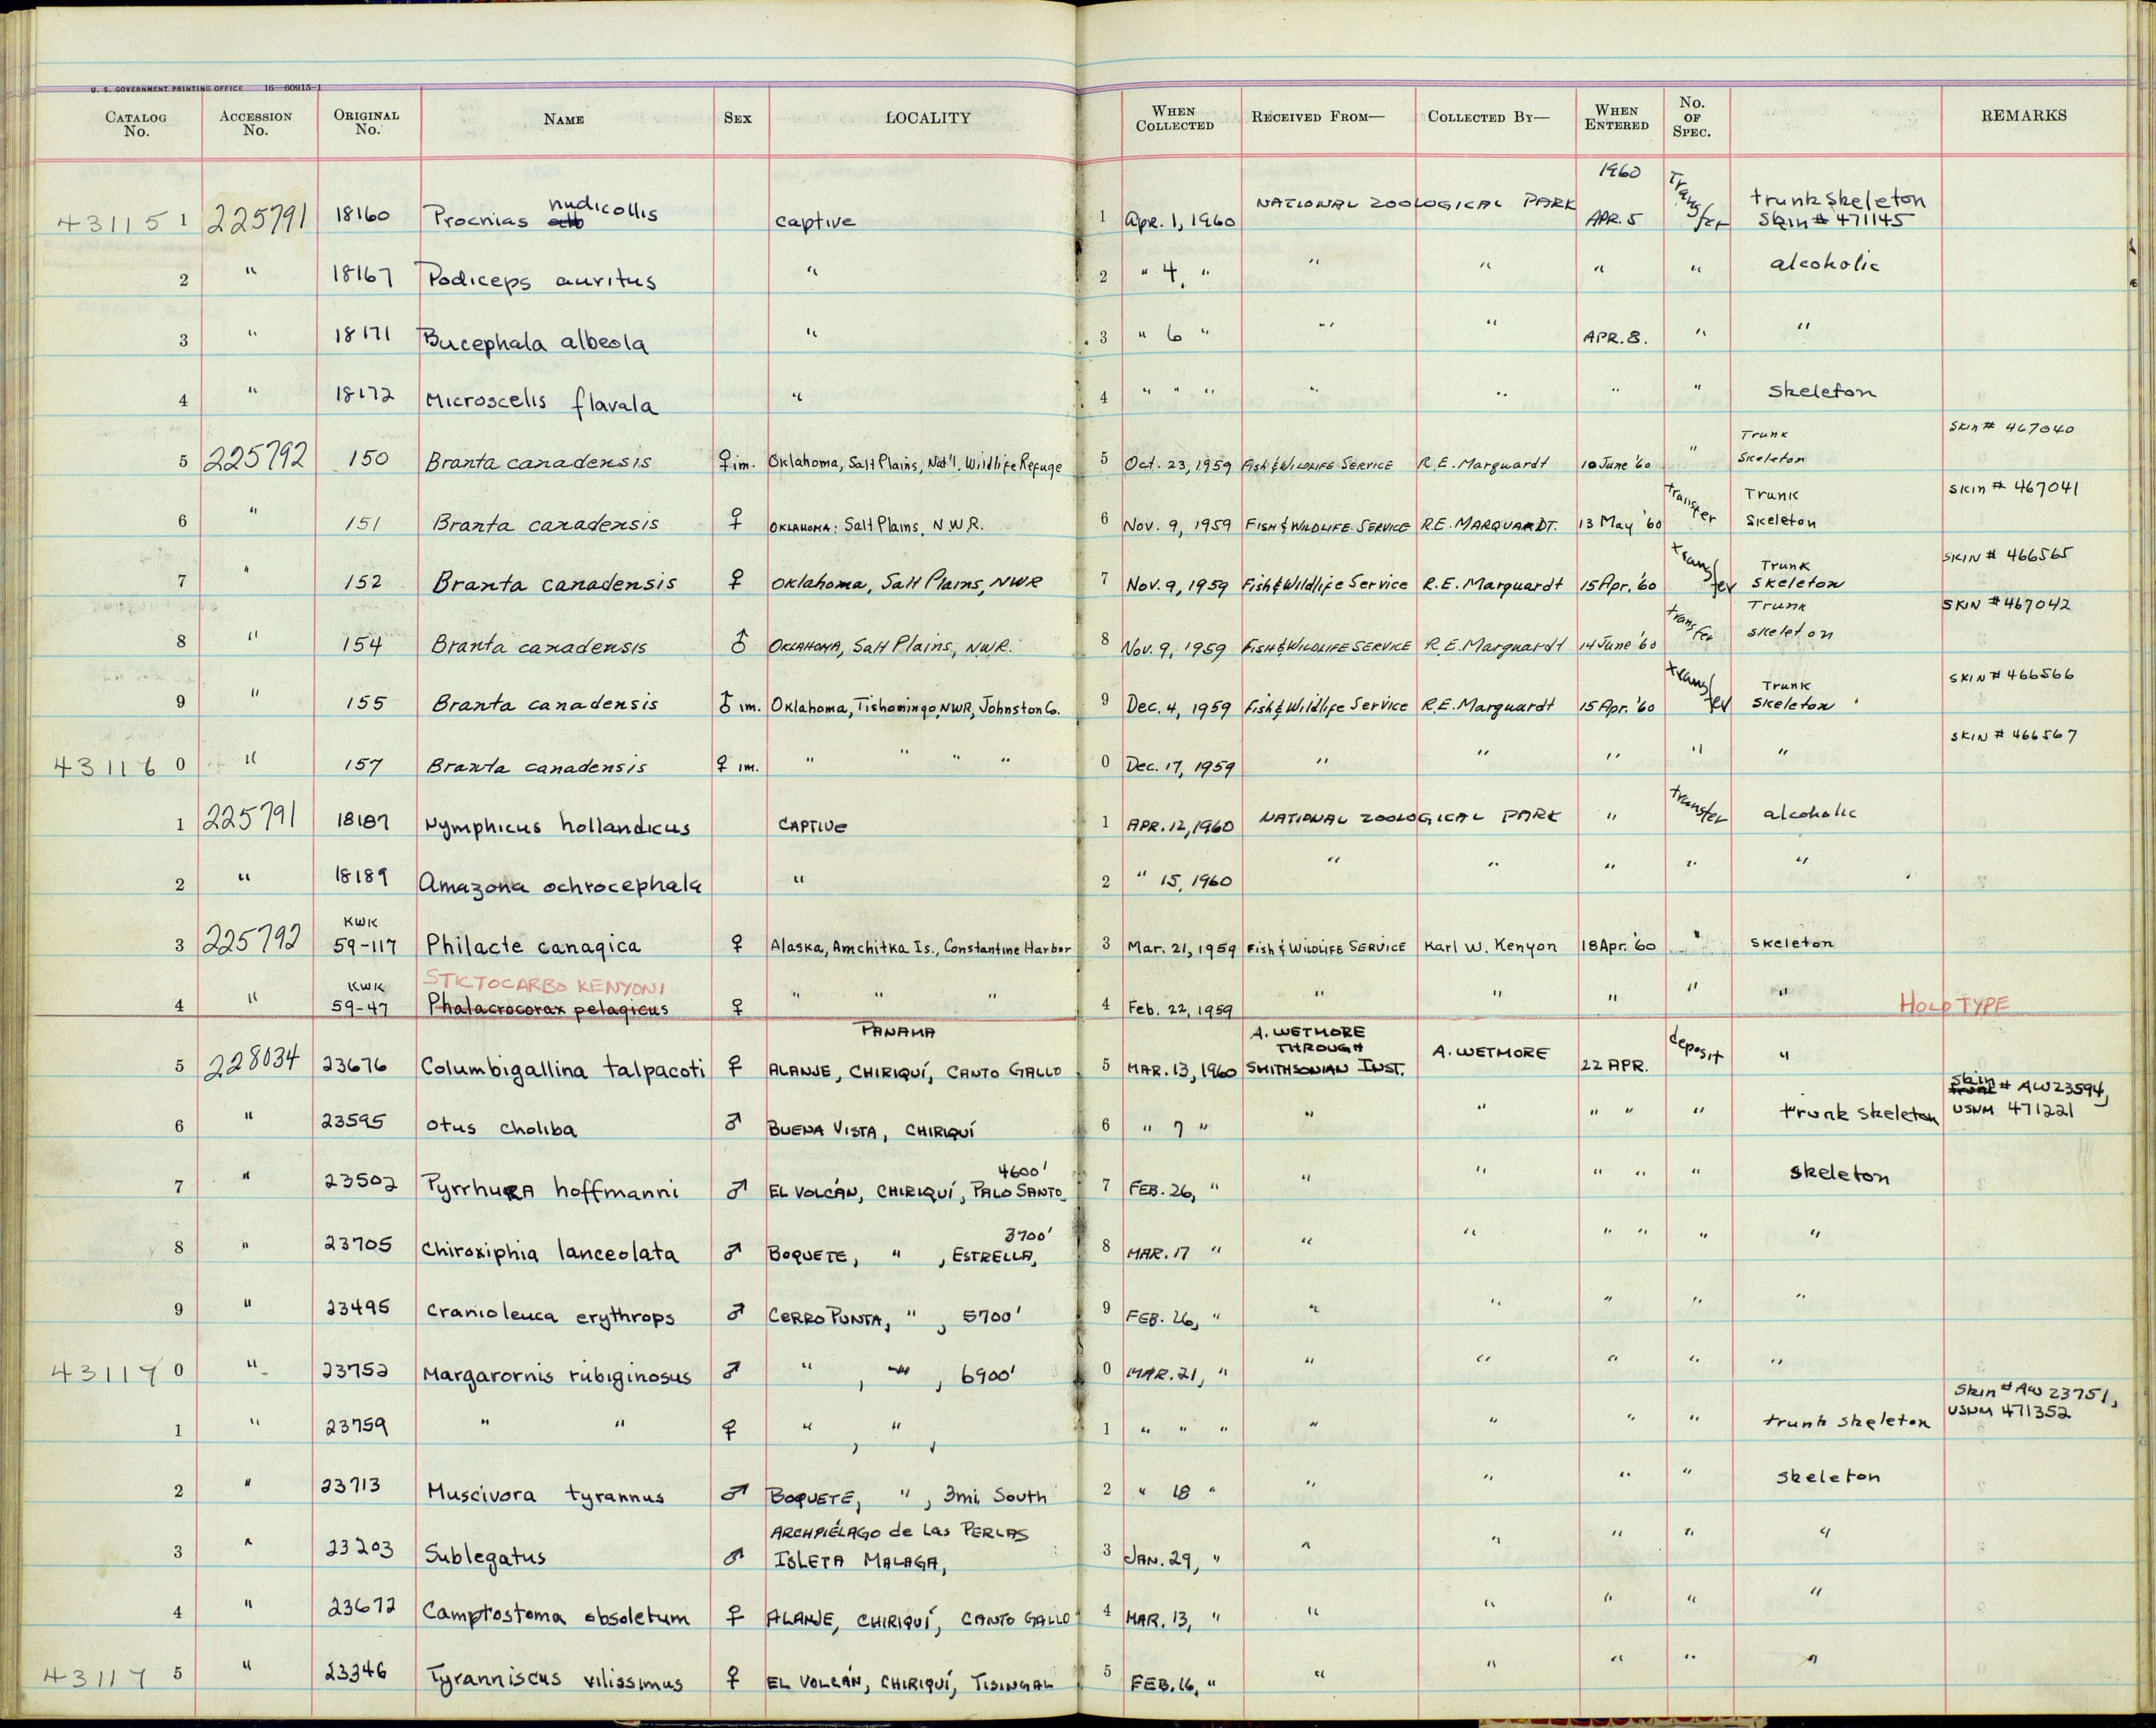 U. S. GOVERNMENT PRINTING OFFICE 16—60915-1
CATALOG No. ACCESSION No. ORIGINAL No. NAME SEX LOCALITY WHEN COLLECTED RECEIVED FROM— COLLECTED BY— WHEN ENTERED No. OF SPEC. REMARKS
431151 225791 18160 Procnias nudicollis captive 1 Apr. 1, 1960 NATIONAL ZOOLOGICAL PARK 1960 APR. 5 Transfer trunk skeleton skin # 471145
2 " 18167 Podiceps auritus " 2 " 4, " " " " " alcoholic
3 " 18171 Bucephala albeola " 3 " 6 " " " APR. 8. " "
4 " 18172 Microscelis flavala " 4 " " " " " " " skeleton
5 225792 150 Branta canadensis ♀ im. Oklahoma, Salt Plains, Nat'l. Wildlife Refuge 5 Oct. 23, 1959 Fish & Wildlife Service R.E. Marquardt 10 June '60 " Trunk Skeleton Skin # 467040
6 " 151 Branta canadensis ♀ OKLAHOMA: Salt Plains, N.W.R. 6 Nov. 9, 1959 FISH & WILDLIFE SERVICE R.E. MARQUARDT. 13 May '60 transfer Trunk Skeleton Skin # 467041
7 " 152 Branta canadensis ♀ Oklahoma, Salt Plains, NWR 7 Nov. 9, 1959 Fish & Wildlife Service R.E. Marquardt 15 Apr. '60 transfer Trunk skeleton SKIN # 466565
8 " 154 Branta canadensis ♂ OKLAHOMA, Salt Plains, NWR. 8 Nov. 9, 1959 FISH & WILDLIFE SERVICE R.E. Marquardt 14 June '60 transfer Trunk skeleton SKIN # 467042
9 " 155 Branta canadensis ♂ im. Oklahoma, Tishomingo NWR, Johnston Co. 9 Dec. 4, 1959 Fish & Wildlife Service R.E. Marquardt 15 Apr. '60 transfer Trunk skeleton SKIN # 466566
431160 " 157 Branta canadensis ♀ im. " " " " 0 Dec. 17, 1959 " " " " " SKIN # 466567
1 225791 18187 Nymphicus hollandicus CAPTIVE 1 APR. 12, 1960 NATIONAL ZOOLOGICAL PARK " transfer alcoholic
2 " 18189 Amazona ochrocephala " 2 " 15, 1960 " " " " "
3 225792 KWK 59-117 Philacte canagica ♀ Alaska, Amchitka Is., Constantine Harbor 3 Mar. 21, 1959 Fish & Wildlife SERVICE Karl W. Kenyon 18 Apr. '60 " skeleton
4 " KWK 59-47 STICTOCARBO KENYONI Phalacrocorax pelagicus ♀ " " " 4 Feb. 22, 1959 " " " " " HOLOTYPE
5 228034 23676 Columbigallina talpacoti ♀ PANAMA ALANJE, CHIRIQUÍ, CANTO GALLO 5 MAR. 13, 1960 A. WETMORE THROUGH SMITHSONIAN INST. A. WETMORE 22 APR. deposit "
6 " 23595 Otus choliba ♂ BUENA VISTA, CHIRIQUÍ 6 " 7 " " " " " " trunk skeleton trunk skin # AW23594, USNM 471221
7 " 23502 Pyrrhura hoffmanni ♂ EL VOLCÁN, CHIRIQUÍ, PALO SANTO, 4600' 7 FEB. 26, " " " " " " skeleton
8 " 23705 Chiroxiphia lanceolata ♂ BOQUETE, " , ESTRELLA, 3700' 8 MAR. 17 " " " " " " "
9 " 23495 Cranioleuca erythrops ♂ CERRO PUNTA, " , 5700' 9 FEB. 26, " " " " " "
431170 " 23752 Margarornis rubiginosus ♂ " , " , 6900' 0 MAR. 21, " " " " " "
1 " 23759 " " ♀ " , " , 1 " " " " " " " trunk skeleton Skin # AW 23751, USNM 471352
2 " 23713 Muscivora tyrannus ♂ BOQUETE, " , 3mi. South 2 " 18 " " " " " skeleton
3 " 23203 Sublegatus ♂ ARCHPIÉLAGO de Las PERLAS ISLETA MALAGA, 3 JAN. 29, " " " " " "
4 " 23672 Camptostoma obsoletum ♀ ALANJE, CHIRIQUÍ, CANTO GALLO 4 MAR. 13, " " " " " "
431175 " 23346 Tyranniscus vilissimus ♀ EL VOLCÁN, CHIRIQUÍ, TISINGAL 5 FEB. 16, " " " " " "